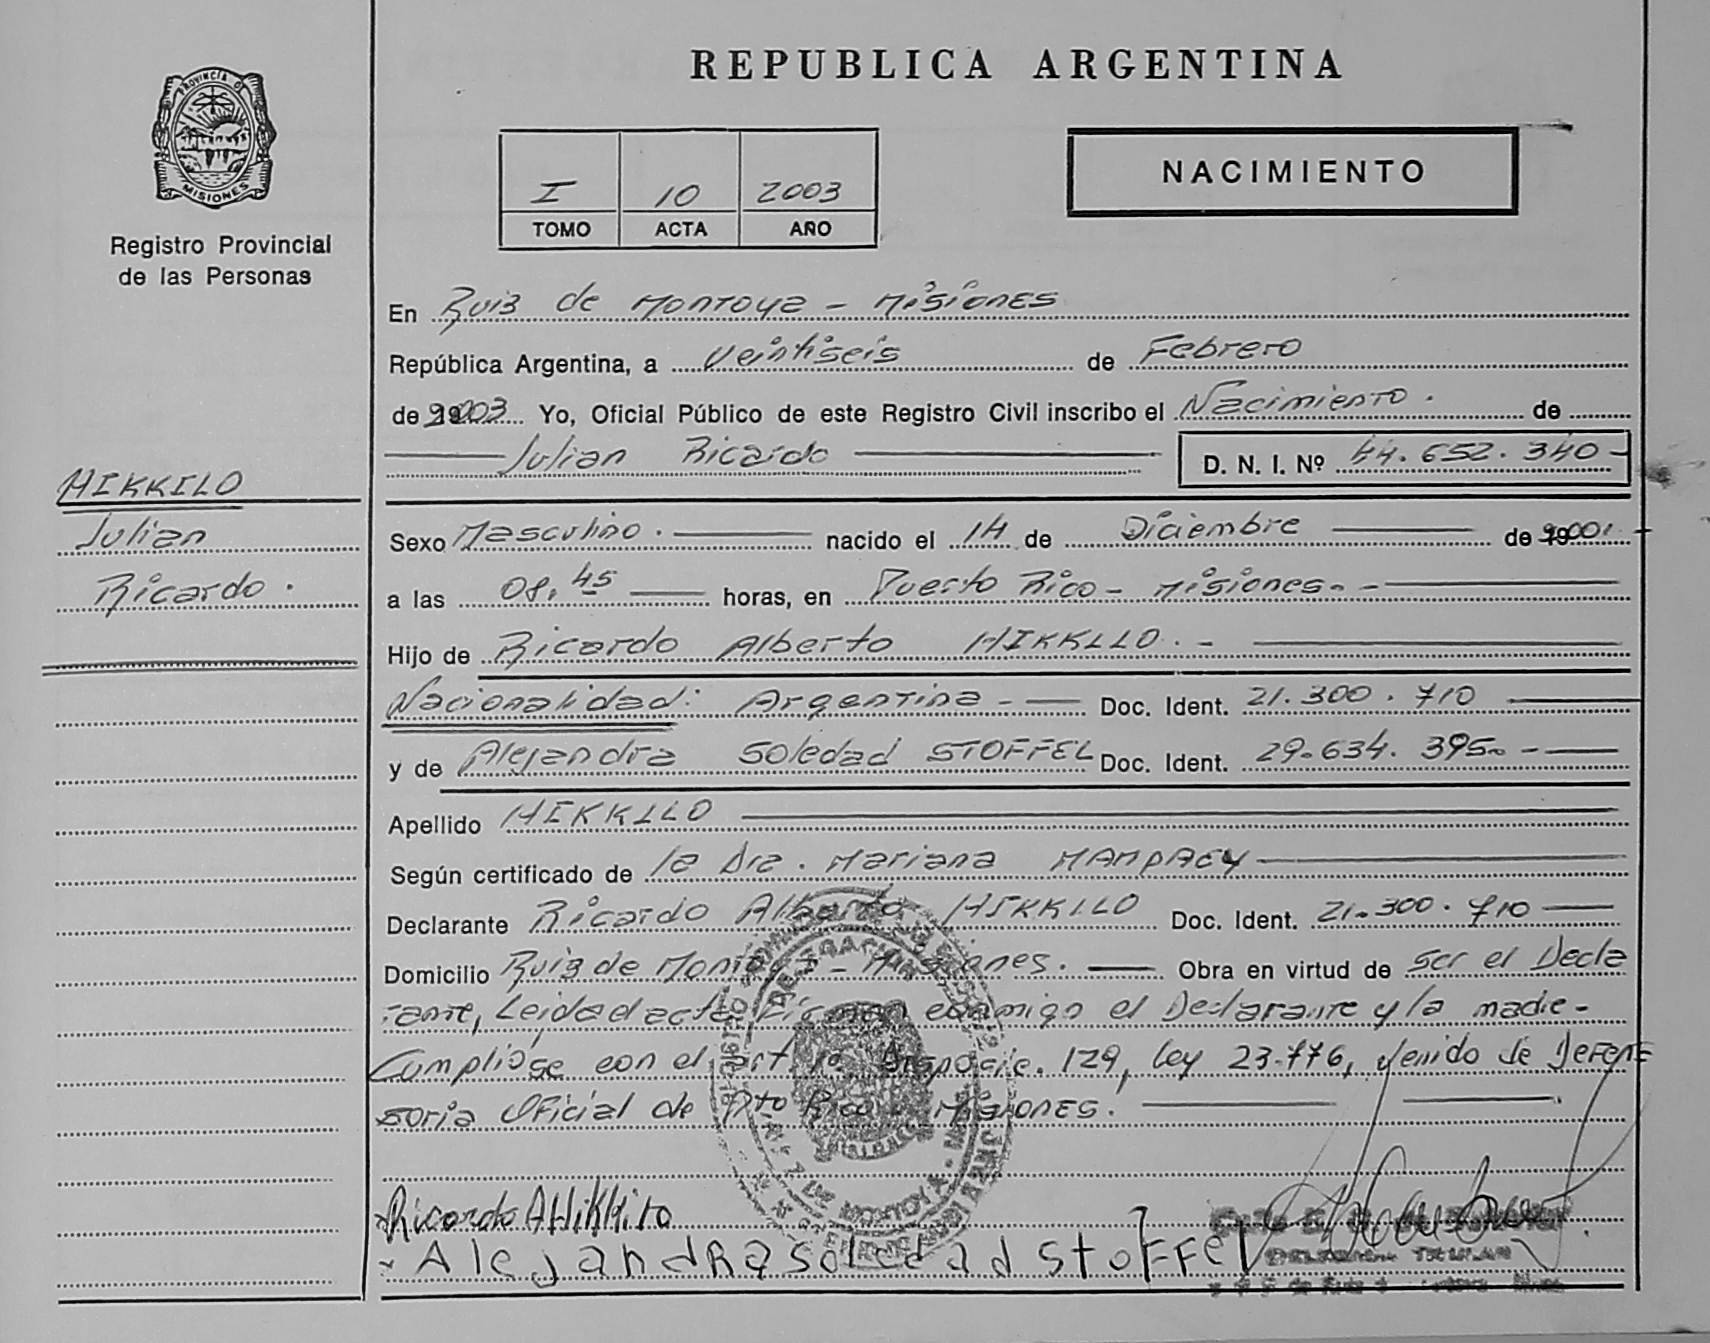 REPUBLICA ARGENTINA
PROVINCIA DE
MISIONES
Registro Provincial
de las Personas
I 10 2003
TOMO ACTA AÑO
NACIMIENTO
En Ruiz de Montoya - Misiones
República Argentina, a veintiseis de Febrero
de 2003 Yo, Oficial Público de este Registro Civil inscribo el Nacimiento. de
Julian Ricardo D. N. I. Nº 44.652.340-
HIKKILO
Julian
Ricardo.
Sexo Masculino. nacido el 14 de Diciembre de 2001
a las 08.45 horas, en Puerto Rico - Misiones.-
Hijo de Ricardo Alberto HIKKILO.-
Nacionalidad: Argentina.- Doc. Ident. 21.300.710
y de Alejandra Soledad STOFFEL Doc. Ident. 29.634.395.-
Apellido HIKKILO
Según certificado de la Dra. Mariana
Declarante Ricardo Alberto HIKKILO Doc. Ident. 21.300.710
Domicilio Ruiz de Montoya - Misiones. Obra en virtud de ser el Decla
rante, Leida el acta Firman conmigo el Declarante y la madre-
Cumpliose con el art. 129, ley 23.776, venido de Defen
soria Oficial de Pto Rico - Misiones.
Ricardo A Hikkilo
- Alejandra soledad stoffel